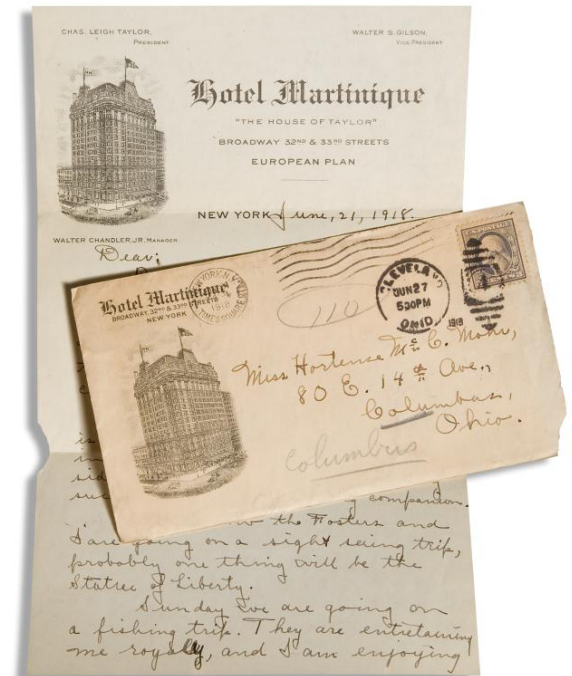 CHAS. LEIGH TAYLOR,
PRESIDENT
WALTER S. GILSON,
VICE-PRESIDENT
Hotel Martinique
"THE HOUSE OF TAYLOR"
BROADWAY 32ND & 33RD STREETS
EUROPEAN PLAN
NEW YORK June, 21, 1918.
WALTER CHANDLER, JR. MANAGER
Dear:
Hotel Martinique
BROADWAY, 32ND & 33RD STREETS
NEW YORK
NEW YORK, N.Y.
1918
TIMES SQUARE
110
CLEVELAND
JUN 27
530PM
OHIO.
1918
Miss Hortense McC. Mohr,
80 E. 14th Ave.,
Columbas,
Ohio.
Columbus
companion.
the Fosters and
I are going on a sight seeing trip,
probably one thing will be the
Statue of Liberty.
Sunday we are going on
a fishing trip. They are entretaining
me royally, and I am enjoying